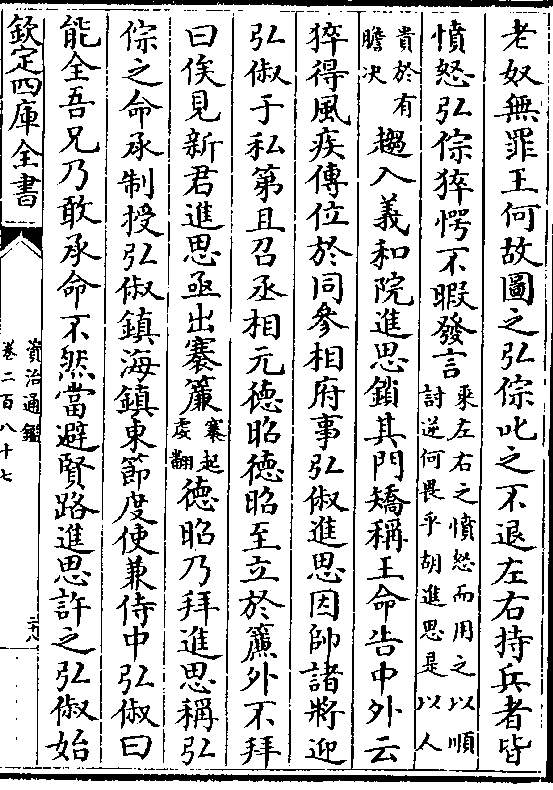 老奴無罪王何故圖之弘倧叱之不退左右持兵者皆
憤怒弘倧猝愕不暇發言乘左右之憤怒而用之以順
討逆何畏乎胡進思是以人
貴於有
膽决趨入義和院進思鎖其門矯稱王命告中外云
猝得風疾傳位於同參相府事弘俶進思因帥諸將迎
弘俶于私第且召丞相元德昭德昭至立於簾外不拜
曰俟見新君進思亟出褰簾褰起
䖍翻德昭乃拜進思稱弘
倧之命承制授弘俶鎮海鎮東節度使兼侍中弘俶曰
能全吾兄乃敢承命不然當避賢路進思許之弘俶始
欽定四庫全書
資治通鑑
卷二百八十七